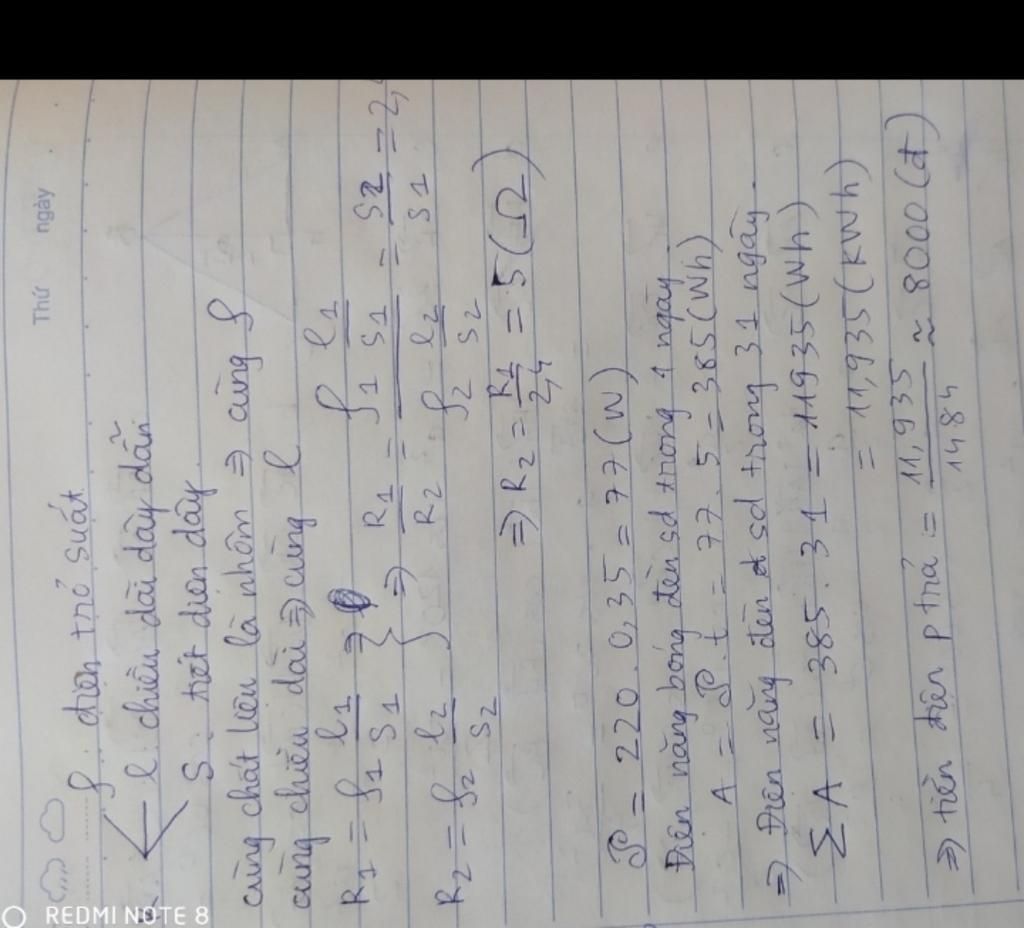 Thứ ngày
ρ: điện trở suất
l: chiều dài dây dẫn
S: tiết diện dây
cùng chất liệu là nhôm => cùng ρ
cùng chiều dài => cùng l
R1 = ρ1 l1/S1
R2 = ρ2 l2/S2
=> R1/R2 = (ρ1 l1/S1)/(ρ2 l2/S2) = S2/S1 = 2,
=> R2 = R1/2,4 = 5 (Ω)
P = 220 . 0,35 = 77 (W)
Điện năng bóng đèn sd trong 1 ngày
A = P.t = 77 . 5 = 385 (Wh)
=> Điện năng đèn sd trong 31 ngày.
∑A = 385 . 31 = 11935 (Wh)
= 11,935 (KWh)
=> tiền điện p trả = 11,935/1484 ≈ 8000 (đ)
REDMI NOTE 8